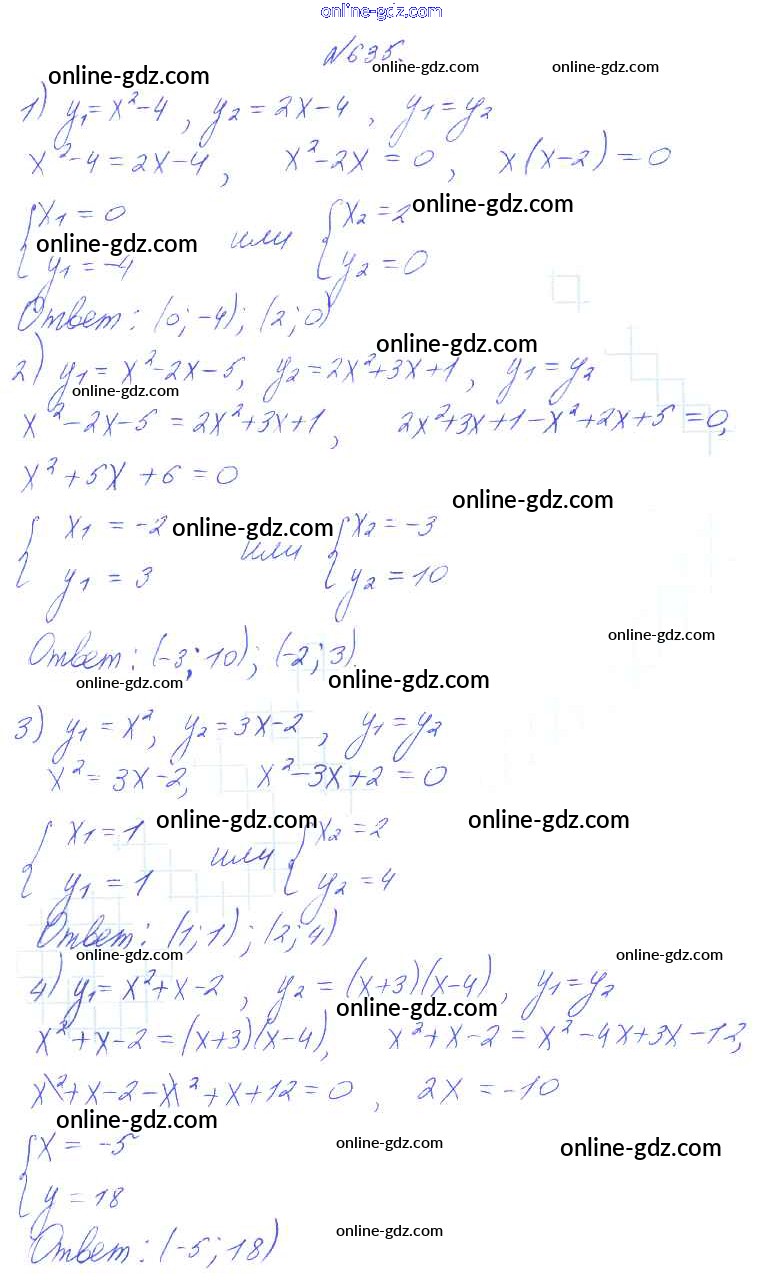 online-gdz.com
№635.
online-gdz.com online-gdz.com online-gdz.com
1) y₁=x²-4, y₂=2x-4, y₁=y₂
x²-4=2x-4, x²-2x=0, x(x-2)=0
{x₁=0 или {x₂=2 online-gdz.com
online-gdz.com
y₁=-4 y₂=0
Ответ: (0;-4); (2;0)
online-gdz.com
2) y₁=x²-2x-5, y₂=2x²+3x+1, y₁=y₂
online-gdz.com
x²-2x-5=2x²+3x+1, 2x²+3x+1-x²+2x+5=0,
x²+5x+6=0
online-gdz.com
{x₁=-2 online-gdz.com или {x₂=-3
y₁=3 y₂=10
online-gdz.com
Ответ: (-3;10); (-2;3).
online-gdz.com online-gdz.com
3) y₁=x², y₂=3x-2, y₁=y₂
x²=3x-2, x²-3x+2=0
{x₁=1 online-gdz.com или {x₂=2 online-gdz.com
y₁=1 y₂=4
Ответ: (1;1); (2;4)
online-gdz.com online-gdz.com
4) y₁=x²+x-2, y₂=(x+3)(x-4), y₁=y₂
online-gdz.com
x²+x-2=(x+3)(x-4), x²+x-2=x²-4x+3x-12,
x²+x-2-x²+x+12=0, 2x=-10
online-gdz.com
{x=-5 online-gdz.com online-gdz.com
y=18
online-gdz.com
Ответ: (-5;18)